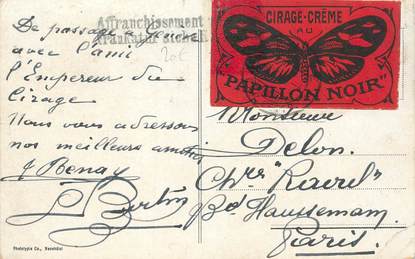 De passage à Genève
avec l'ami
l'Empereur du
Cirage
Nous vous adressons
nos meilleurs amitiés
J Benay
Bertin
Affranchissement
CIRAGE-CRÊME
AU
"PAPILLON NOIR"
Monsieur
Delon
Chez "Raoul"
Bd Haussemam
Paris.
Phototypie Co., Neuchâtel